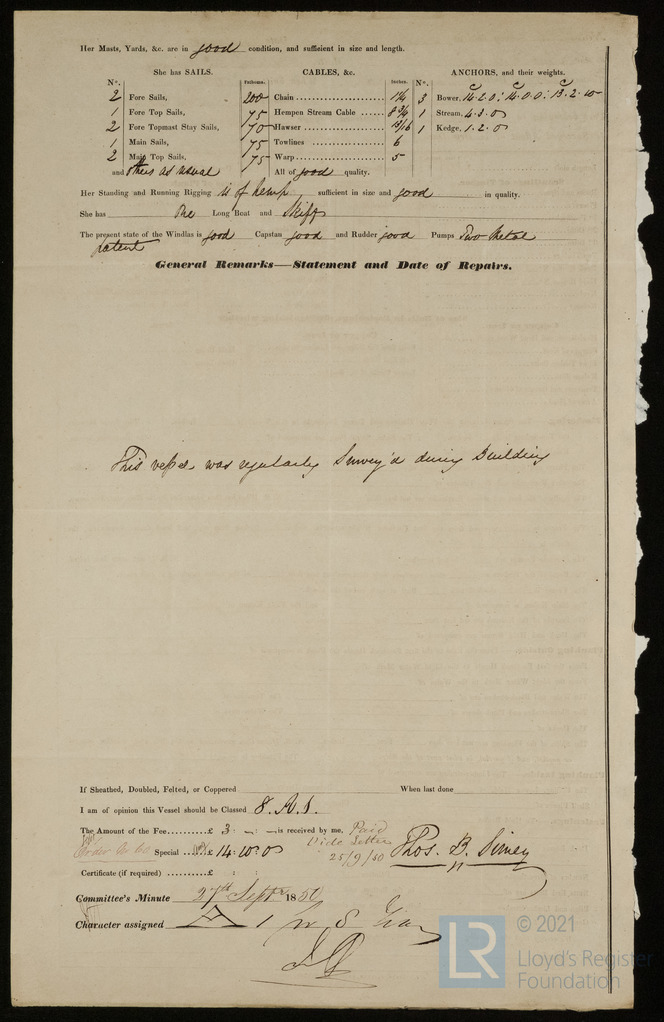 Her Masts, Yards, &c. are in good condition, and sufficient in size and length.
She has SAILS.
CABLES, &c.
ANCHORS, and their weights.
Nº.
Fathoms.
Inches.
Nº.
2 Fore Sails, 200 Chain 3 Bower, 14.2.0: 14.0.0: 13.2.10
1 Fore Top Sails, 75 Hempen Stream Cable 1 Stream, 4.3.0
2 Fore Topmast Stay Sails, 170 Hawser 13/16 1 Kedge, 1.2.0
1 Main Sails, 75 Towlines 6
2 Main Top Sails, 75 Warp 5
and others as usual All of good quality.
Her Standing and Running Rigging is of hemp, sufficient in size and good in quality.
She has One Long Boat and Skiff
The present state of the Windlas is good Capstan good and Rudder good Pumps Two Metal
patent
General Remarks—Statement and Date of Repairs.
This vessel was regularly Survey'd during Building
If Sheathed, Doubled, Felted, or Coppered When last done
I am of opinion this Vessel should be Classed 8. A.1.
The Amount of the Fee.........£ 3 : — : — is received by me, Paid
Vide Letter
Special £ 14: 10. 0 25/9/50 Thos. B. Simey
Certificate (if required) ..........£ : :
Committee's Minute 27th Septr 1850
Character assigned A 1
© 2021
LR
Lloyd's Register
Foundation